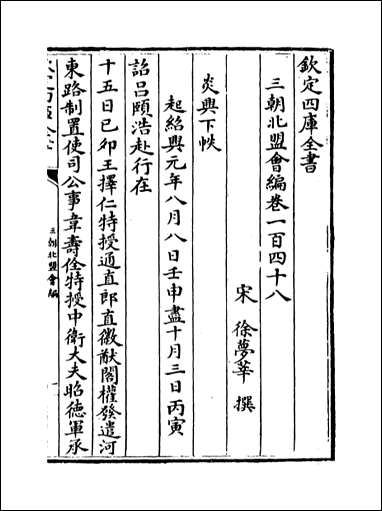 欽定四庫全書
三朝北盟會編卷一百四十八
宋 徐夢莘 撰
炎興下帙
起紹興元年八月八日壬申盡十月三日丙寅
詔吕頤浩赴行在
十五日已卯王擇仁特授通直郎直徽猷閣權發遣河
東路制置使司公事韋壽佺特授中衛大夫昭徳軍承
三朝北盟會編